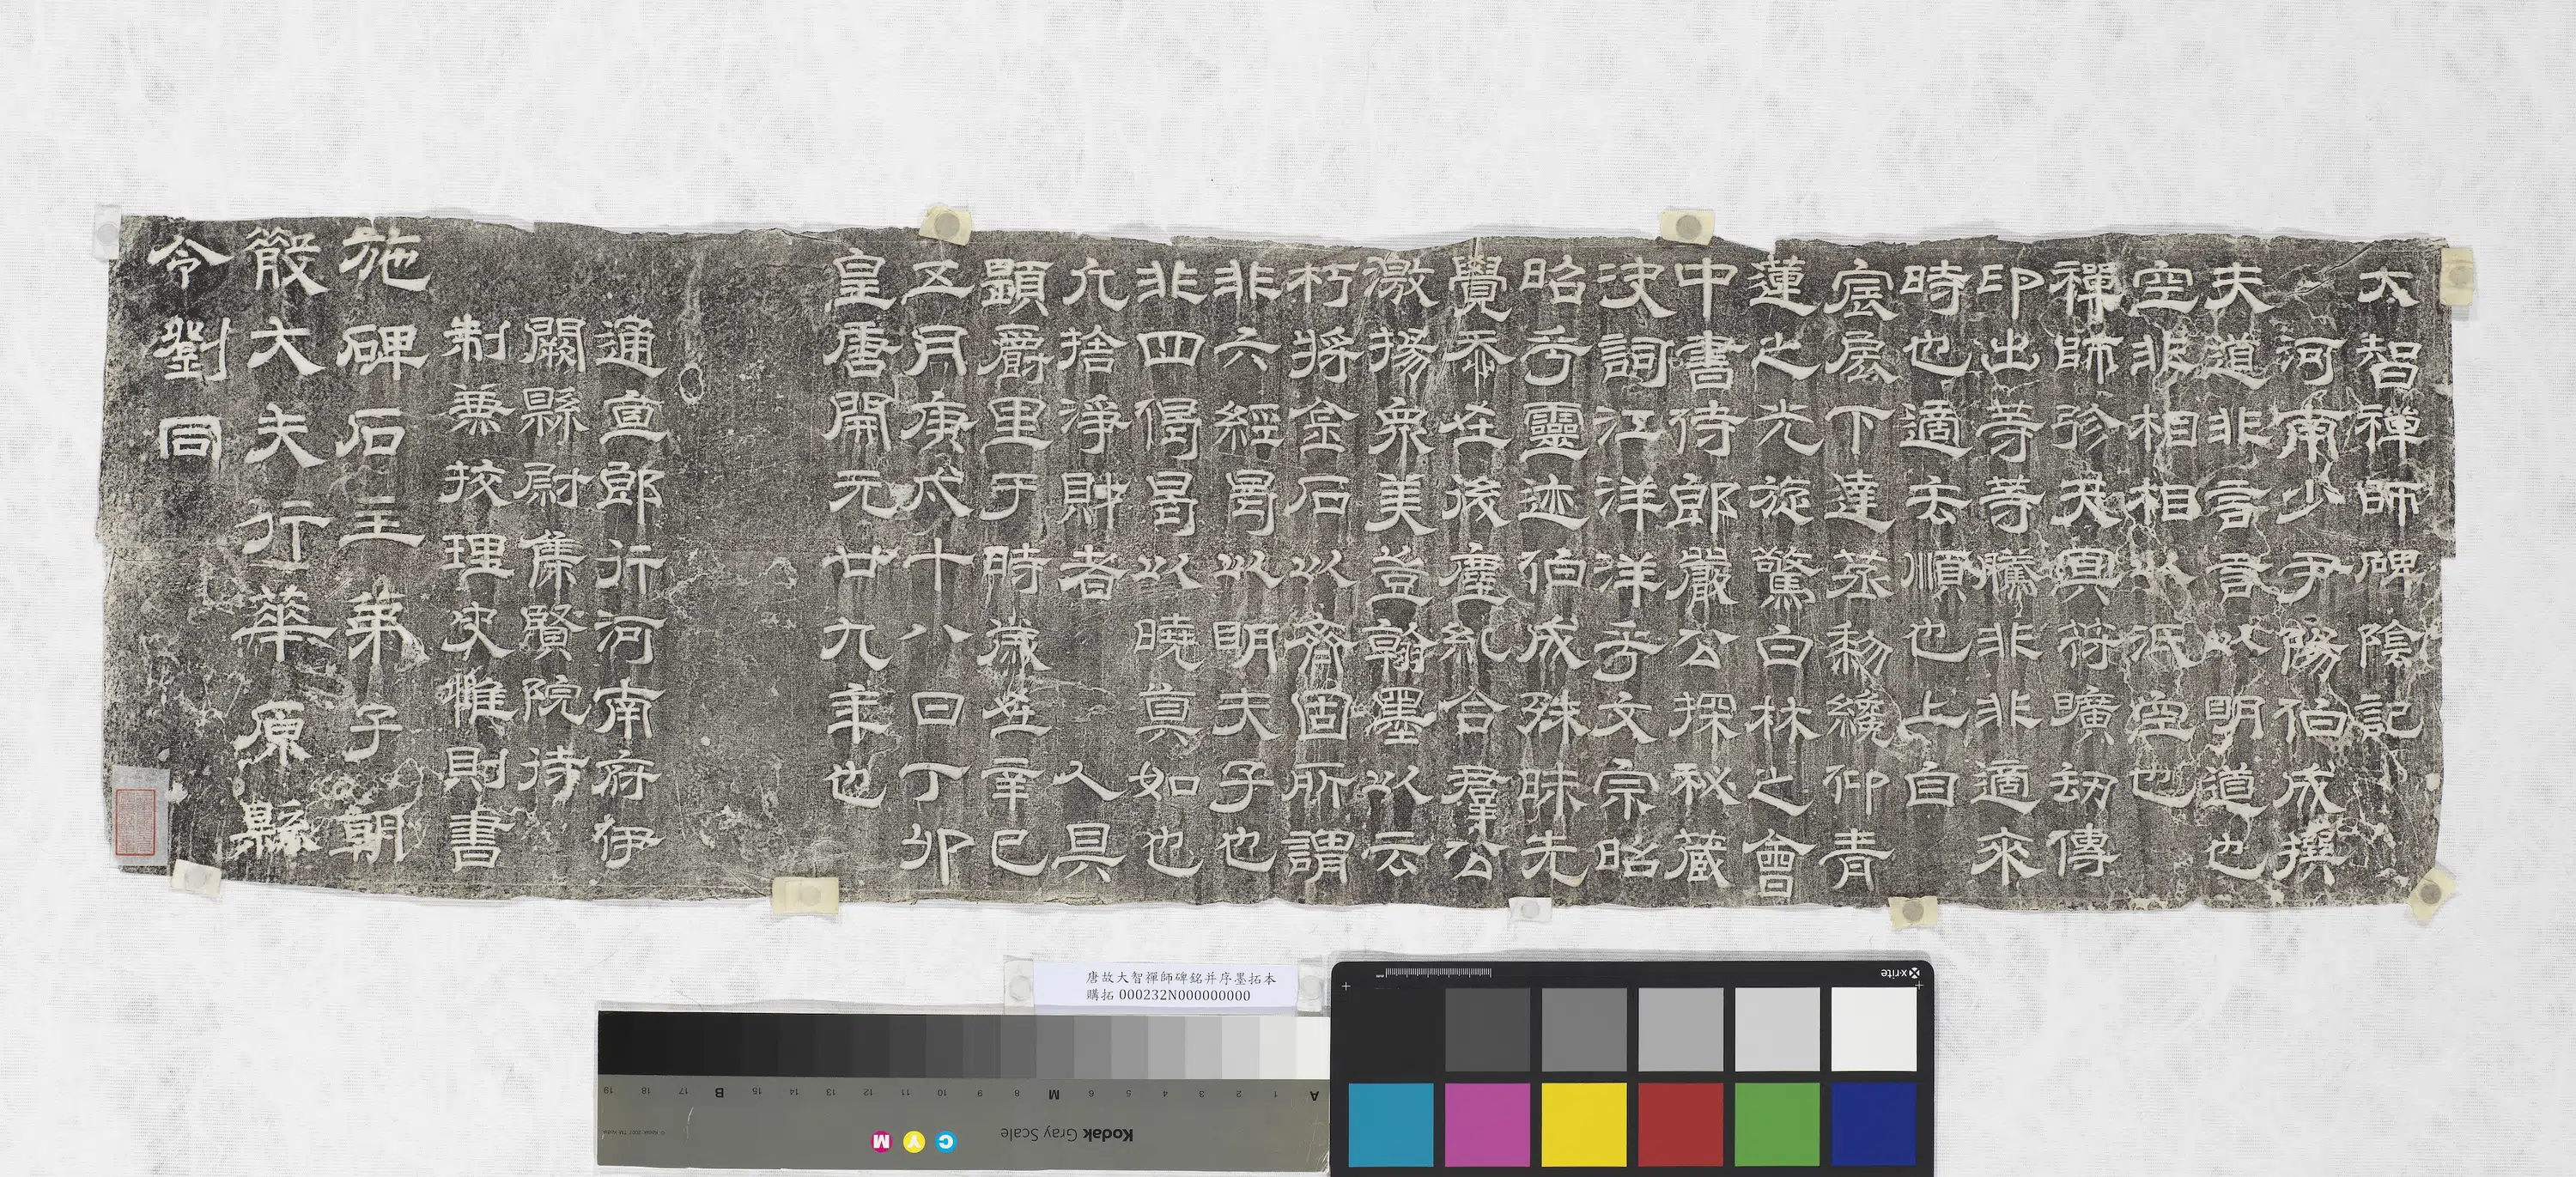 大智禪師碑陰記
河南少尹陽伯成撰
夫道非言言以明道也
空非相相以泯空也
禪師弥天冥符曠劫傳
印出等等騰非非適來
時也適去順也上自
宸扆下達蒸黎纔仰青
蓮之光旋驚白林之會
中書侍郎嚴公探秘藏
決詞江洋洋乎文宗昭
昭乎靈迹伯成殊昧先
覺忝在後塵礼合羣公
激揚衆美豈翰墨以云
朽將金石以齊固所謂
非六經曷以明夫子也
非四偈曷以曉真如也
允捨淨財者 人具
顯爵里于時歲在辛巳
五月庚戌十八日丁卯
皇唐開元廿九年也
通宣郎行河南府伊
闕縣尉集賢院待
制兼挍理史惟則書
施碑石主弟子朝
散大夫行華原縣
令劉同
唐故大智禪師碑銘并序墨拓本
購拓 000232N000000000
x-rite
Kodak Gray Scale
C Y M
A 1 2 3 4 5 6 M 8 9 10 11 12 13 14 15 B 17 18 19